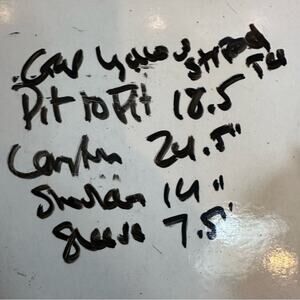 Gap Yellow Striped Tee
Pit to Pit 18.5
Length 24.5"
Shoulder 14"
Sleeve 7.5"